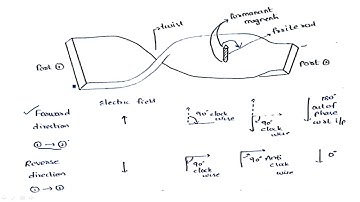 permanent
magnet
twist
ferrite rod
Port ①
Port ②
Electric field
Forward
direction
① → ②
90° clock
wise
90°
clock
wise
180°
out of
phase
w.r.t i/p
Reverse
direction
90°
clock
wise
90° Anti
clock
wise
0°